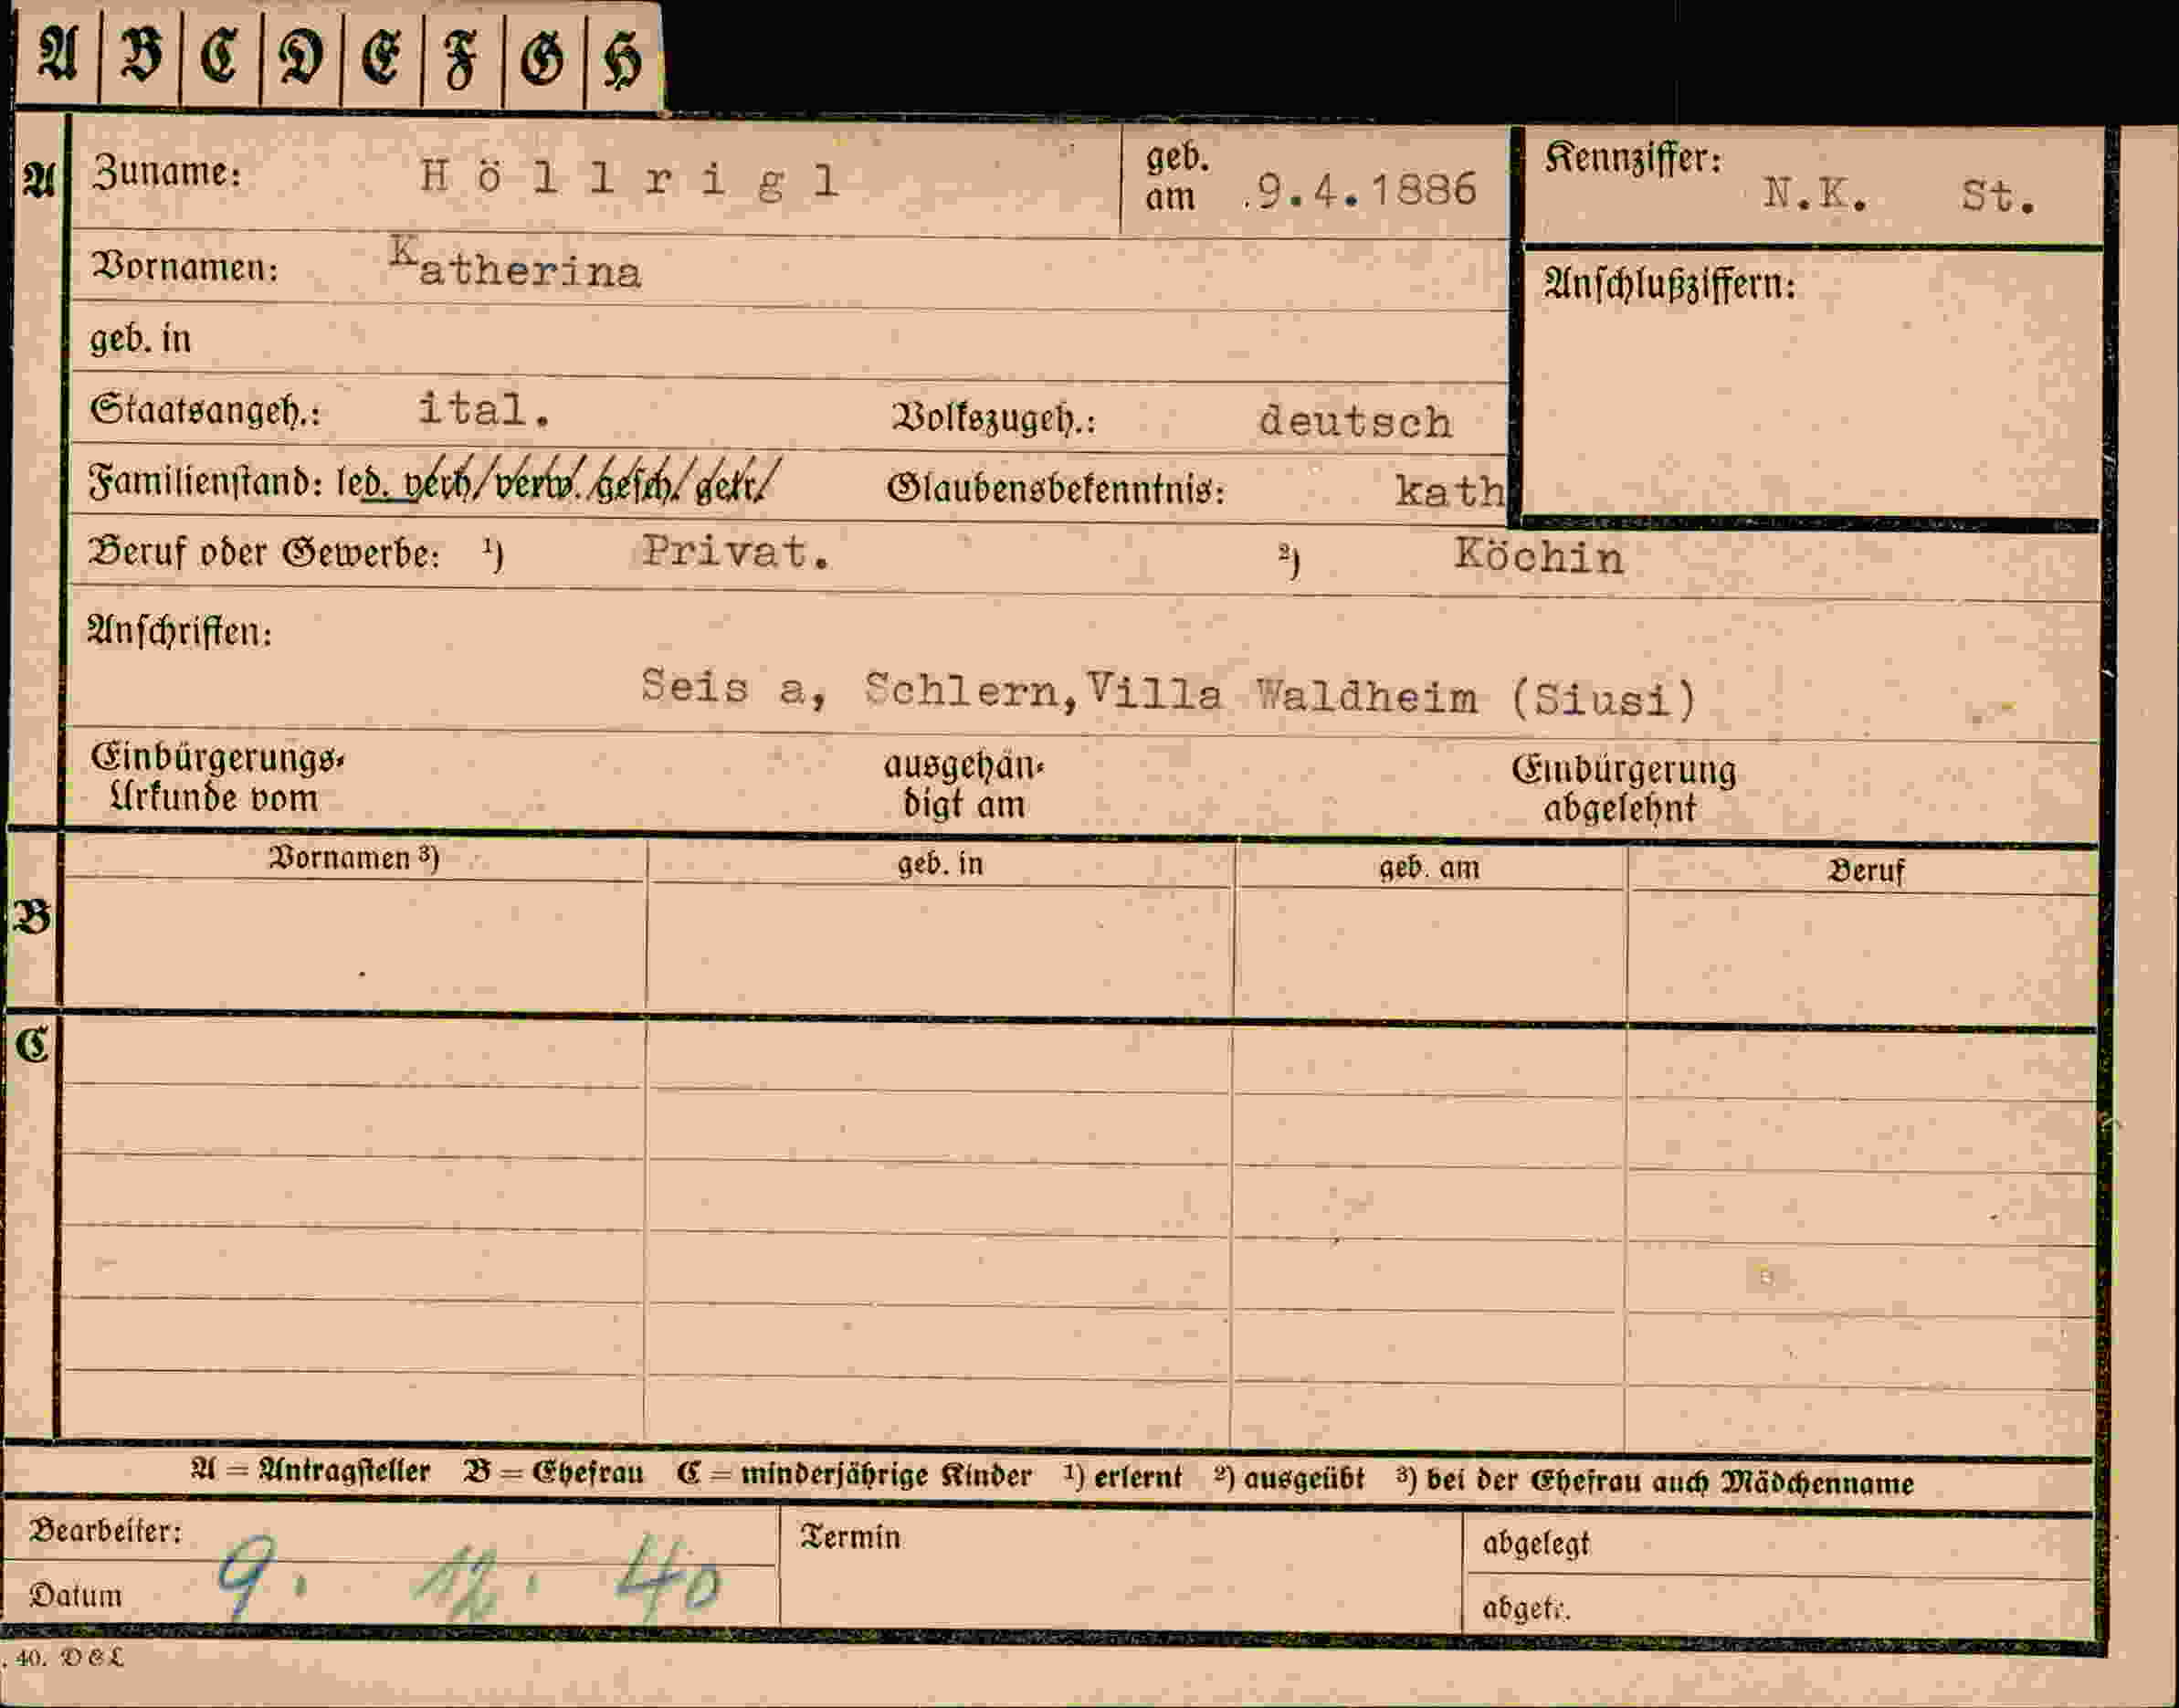 A B C D E F G H
A Zuname: Höllrigl geb. am 9.4.1886 Kennziffer: N.K. St.
Vornamen: Katherina
Anschlußziffern:
geb. in
Staatsangeh.: ital. Volkszugeh.: deutsch
Familienstand: led. verh. verw. gesch. getr. Glaubensbekenntnis: kath
Beruf oder Gewerbe: ¹) Privat. ²) Köchin
Anschriften:
Seis a, Schlern, Villa Waldheim (Siusi)
Einbürgerungs-Urkunde vom ausgehändigt am Einbürgerung abgelehnt
Vornamen ³) geb. in geb. am Beruf
B
C
A = Antragsteller B = Ehefrau C = minderjährige Kinder ¹) erlernt ²) ausgeübt ³) bei der Ehefrau auch Mädchenname
Bearbeiter: Termin abgelegt
Datum 9. 12. 40 abgetr.
. 40. D & L